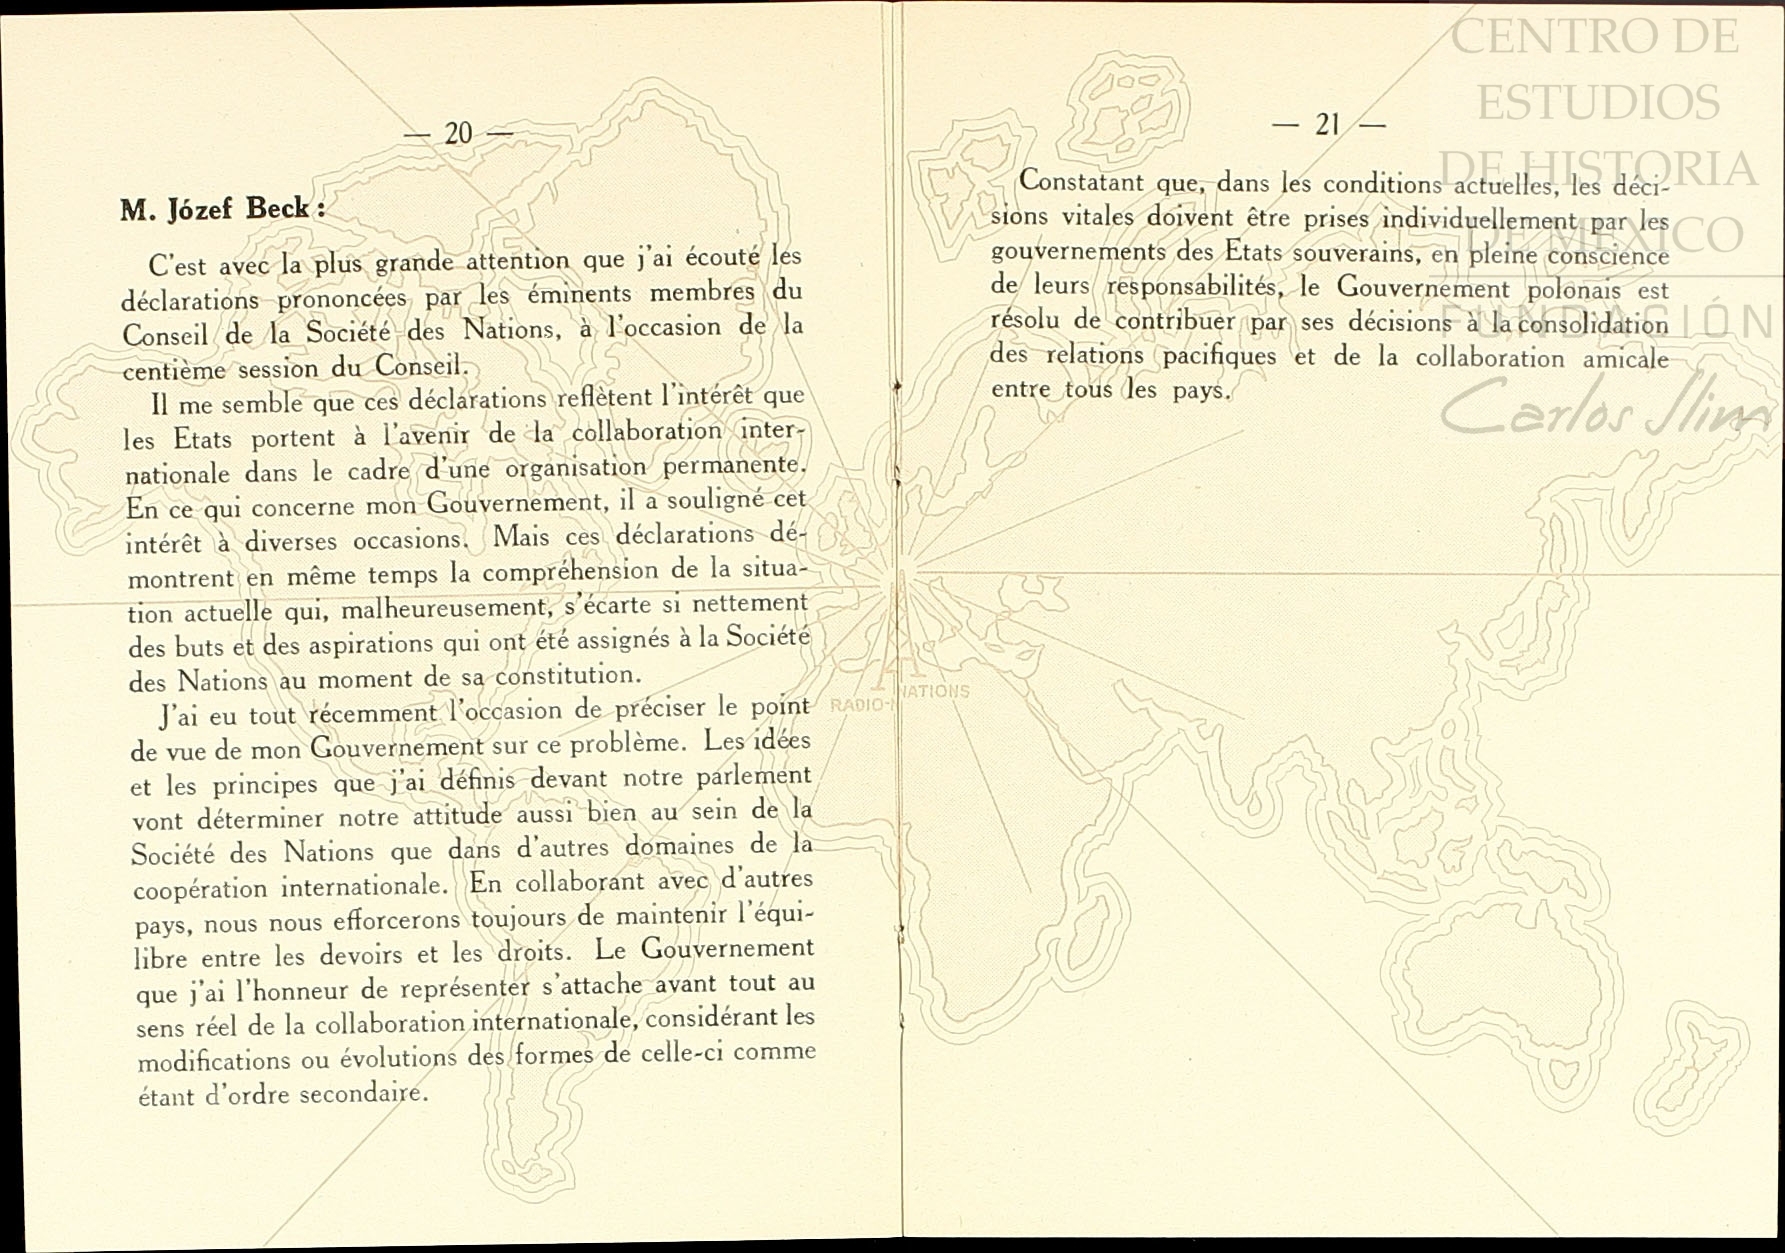 — 20 —
M. Józef Beck :
C'est avec la plus grande attention que j'ai écouté les
déclarations prononcées par les éminents membres du
Conseil de la Société des Nations, à l'occasion de la
centième session du Conseil.
Il me semble que ces déclarations reflètent l'intérêt que
les Etats portent à l'avenir de la collaboration inter-
nationale dans le cadre d'une organisation permanente.
En ce qui concerne mon Gouvernement, il a souligné cet
intérêt à diverses occasions. Mais ces déclarations dé-
montrent en même temps la compréhension de la situa-
tion actuelle qui, malheureusement, s'écarte si nettement
des buts et des aspirations qui ont été assignés à la Société
des Nations au moment de sa constitution.
J'ai eu tout récemment l'occasion de préciser le point
de vue de mon Gouvernement sur ce problème. Les idées
et les principes que j'ai définis devant notre parlement
vont déterminer notre attitude aussi bien au sein de la
Société des Nations que dans d'autres domaines de la
coopération internationale. En collaborant avec d'autres
pays, nous nous efforcerons toujours de maintenir l'équi-
libre entre les devoirs et les droits. Le Gouvernement
que j'ai l'honneur de représenter s'attache avant tout au
sens réel de la collaboration internationale, considérant les
modifications ou évolutions des formes de celle-ci comme
étant d'ordre secondaire.
— 21 —
Constatant que, dans les conditions actuelles, les déci-
sions vitales doivent être prises individuellement par les
gouvernements des Etats souverains, en pleine conscience
de leurs responsabilités, le Gouvernement polonais est
résolu de contribuer par ses décisions à la consolidation
des relations pacifiques et de la collaboration amicale
entre tous les pays.
RADIO-NATIONS
CENTRO DE
ESTUDIOS
DE HISTORIA
DE MÉXICO
FUNDACIÓN
Carlos Slim